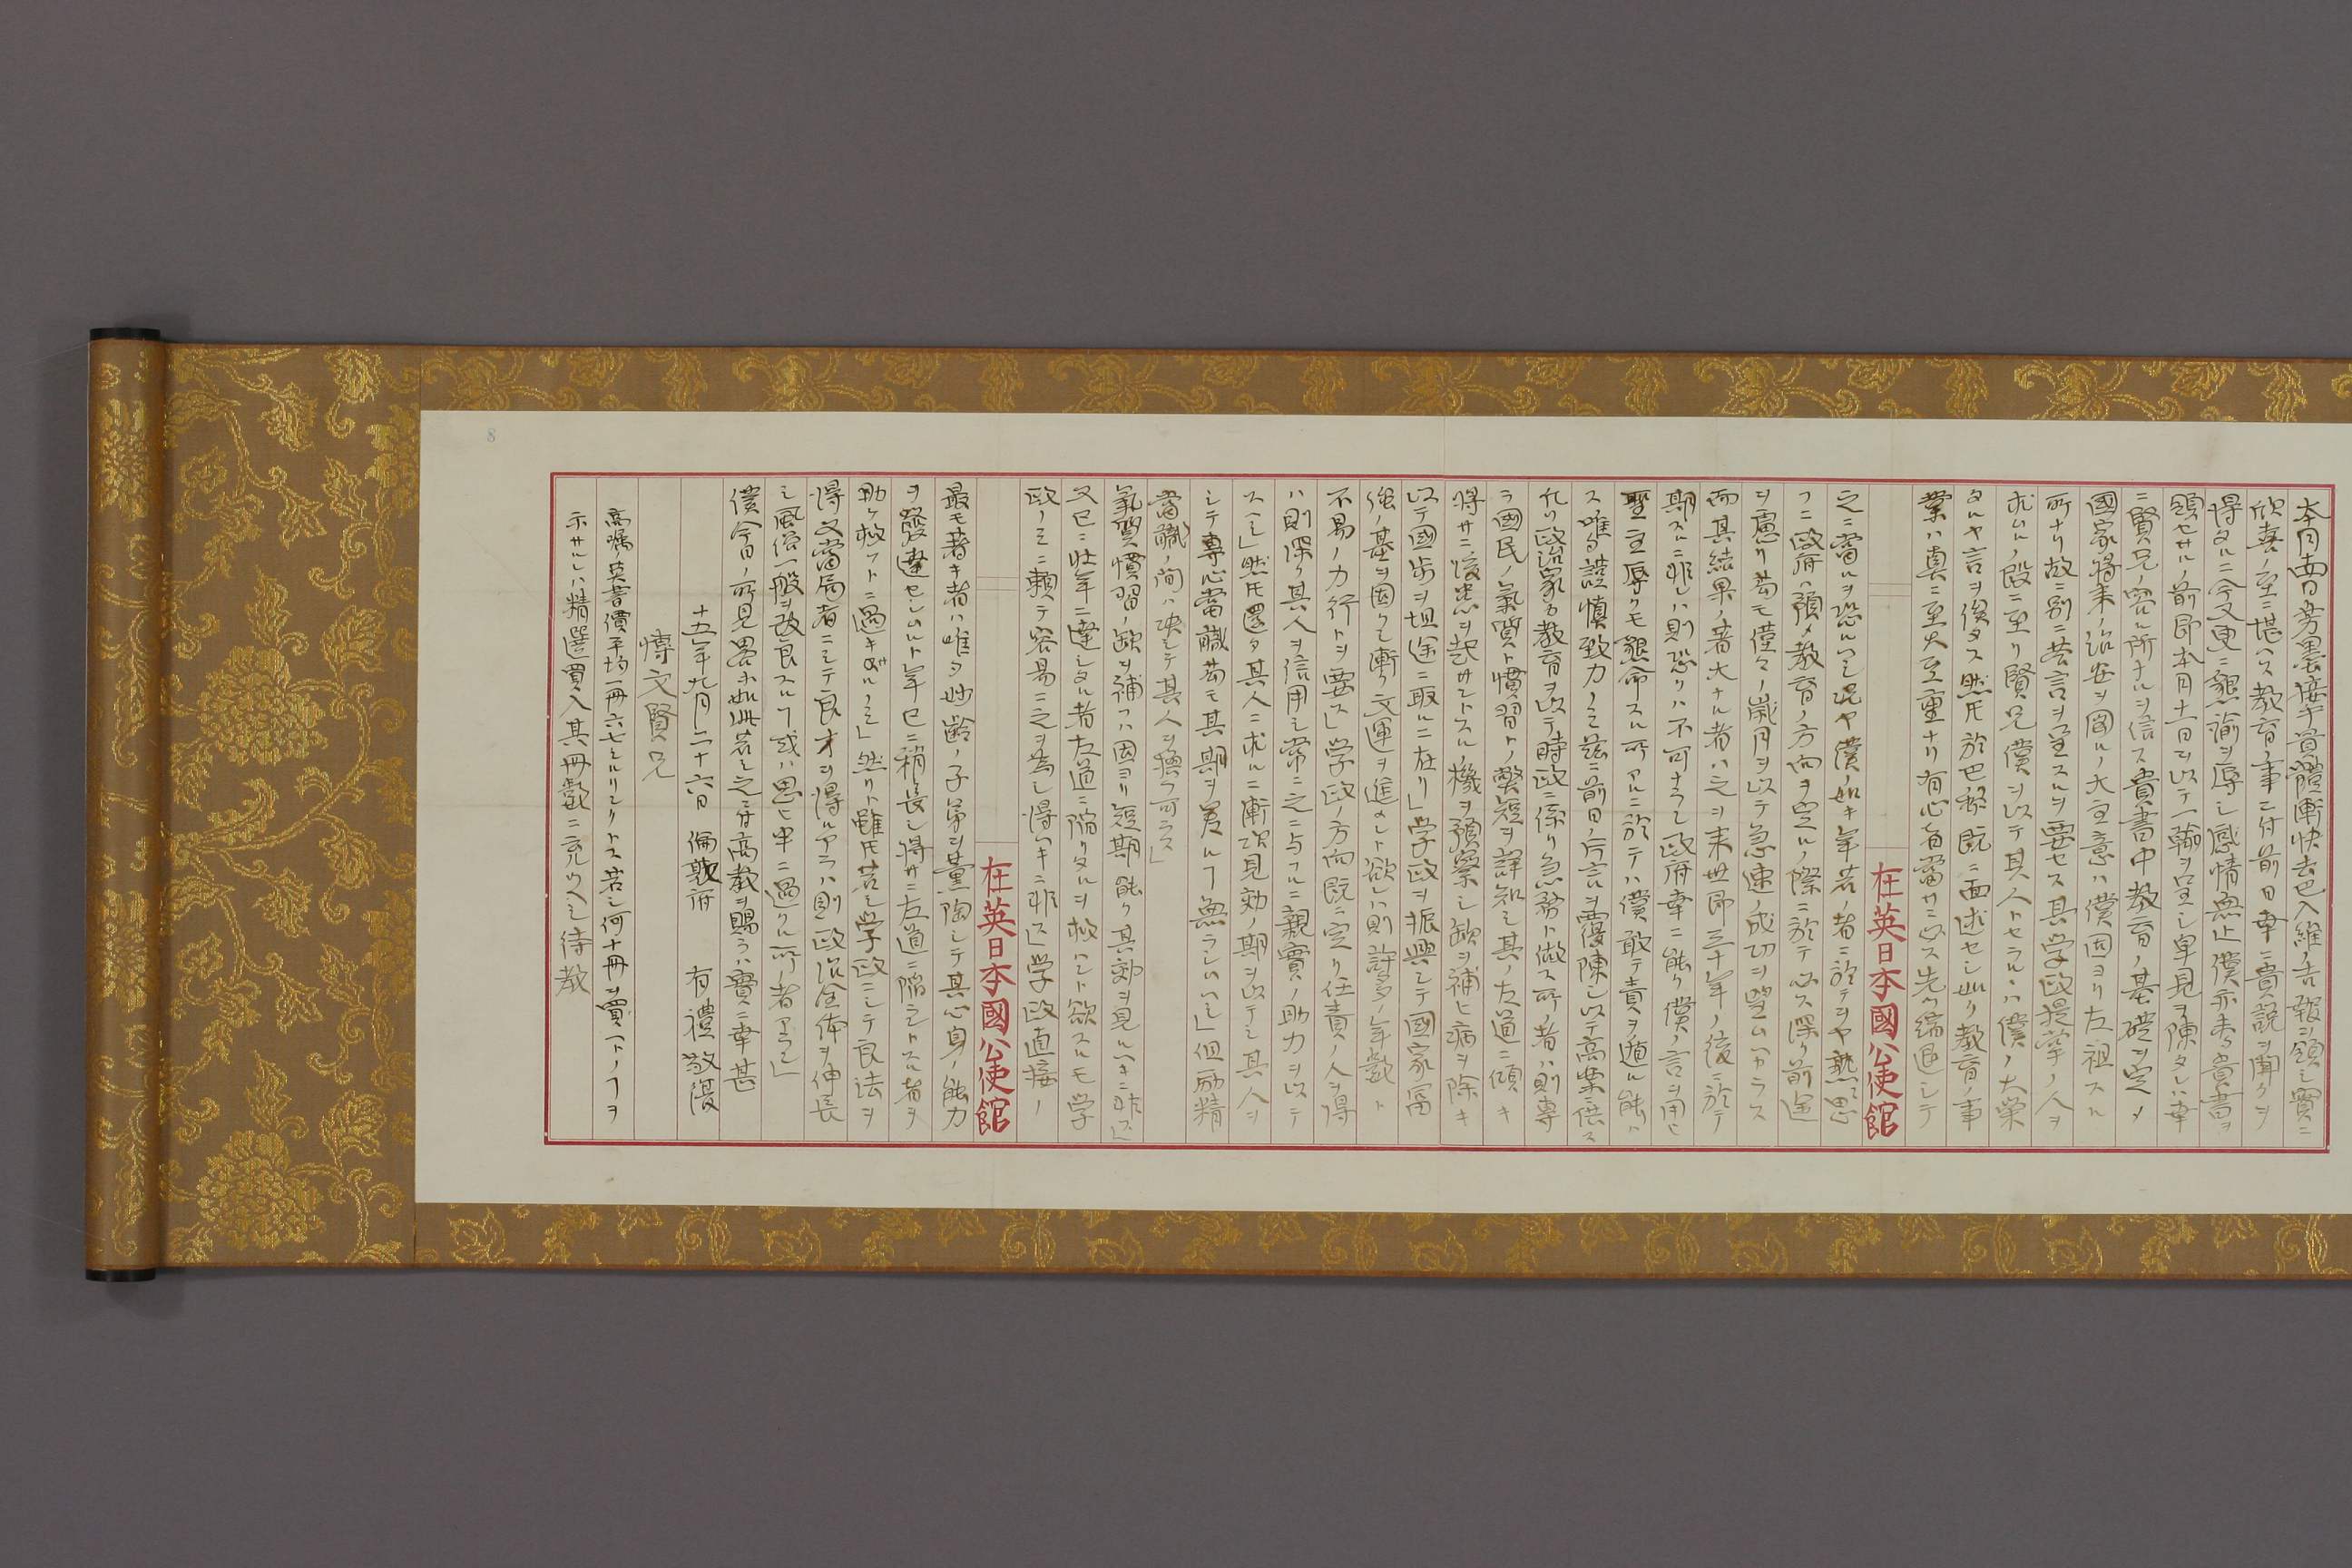 本月両日芳墨接手首體漸快去巴入維ノ吉報ヲ領シ實ニ
欣喜ノ至ニ堪ヘス教育ノ事ニ付前日幸ニ貴説ヲ聞クヲ
得タルニ今又更ニ懇諭ヲ辱シ感情無止僕亦未タ貴書ヲ
領セサル前即本月十一日ヲ以テ一翰ヲ呈シ卑見ヲ陳タレハ幸
ニ賢兄ノ容ル所ナルヲ信ス貴書中教育ノ基礎ヲ定メ
國家將来ノ治安ヲ圖ルノ大主意ハ僕固ヨリ左祖スル
所ナリ故ニ別ニ芸言ヲ呈スルヲ要セス其学政提挙ノ人ヲ
求ムルノ段ニ至リ賢兄僕ヲ以テ其人トセラルヽハ僕ノ大榮
タルヤ言ヲ俟タス然圧於巴黎既ニ面述セシ如ク教育ノ事
業ハ真ニ至大至重ナリ有心者當サニ必ス先ツ縮退シテ
在英日本國公使館
之ニ當ルヲ恐ルヘシ况ヤ僕ノ如キ年若ノ者ニ於テヲヤ熟思
フニ政府ハ預メ教育ノ方向ヲ定ルノ際ニ於テ必ス深ク前途
ヲ慮リ苟モ僅々ノ歳月ヲ以テ急速ノ成功ヲ望ムヘカラス
而其結果ノ著大ナル者ハ之ヲ来世即三十年ノ後ニ於テ
期スルニ非レハ則恐クハ不可ナラン政府幸ニ能ク僕ノ言ヲ用ヒ
聖主辱クモ懇命スル所アルニ於テハ僕敢テ責ヲ遁ル能ハ
ス唯タ謹慎致力ノミ茲ニ前日ノ片言ヲ覆陳シ以テ高案ニ供ス
凡ソ政治家カ教育ヲ以テ時政ニ係リ急務ト做ス所ノ者ハ則専
ラ國民ノ氣質ト慣習トノ弊短ヲ詳知シ其ノ左道ニ傾キ
得サニ後患ヲ起サントスルノ機ヲ預察シ缺ヲ補ヒ病ヲ除キ
以テ國歩ヲ坦途ニ取ルニ在リ」学政ヲ振興シテ國家富
強ノ基ヲ固クシ漸ク文運ヲ進メント欲レハ則許多ノ年數ト
不易ノ力行トヲ要ス」学政ノ方向既ニ定リ任責ノ人ヲ得
ハ則深ク其人ヲ信用シ常ニ之ニ与フルニ親實ノ助力ヲ以テ
スヘシ」然圧還タ其人ニ求ルニ漸次見効ノ期ヲ以テシ其人ヲ
シテ専心當職苟モ其期ヲ差ルヿ無ラシムヘシ」但励精
當職ノ間ハ决シテ其人ヲ換フ可ラス」
氣質慣習ノ缺ヲ補フハ固ヨリ短期能ク其効ヲ見ルヘキニ非ス」
又已ニ壮年ニ達シタル者左道ニ陥リタルヲ救ハント欲スルモ学
政ノミニ頼テ容易ニ之ヲ為シ得ヘキニ非ス」学政直接ノ
在英日本國公使館
最モ著キ者ハ唯タ妙齢ノ子弟ヲ薫陶シテ其心身ノ能力
ヲ發達セシムルト年已ニ稍長シ将サニ左道ニ陥ラントスル者ヲ
助ケ救フトニ過キザルノミ」然リト雖圧若シ学政ニシテ良法ヲ
得又當局者ニシテ良才ヲ得ルアラハ則政治全体ヲ伸長
シ風俗一般ヲ改良スルヿ或ハ思ヒ半ニ過クル所ノ者アラン」
僕今日ノ所見畧ホ如此若シ之ニ付高教ヲ賜ラハ實ニ幸甚
十五年九月二十六日 倫敦府 有禮 敬復
博文賢兄
高嘱ノ英書價平均一冊六七シルリングトス若シ何十冊ヲ買ヘトノヿヲ
示サルレハ精選買入其冊數ニ充ツヘシ待教
8